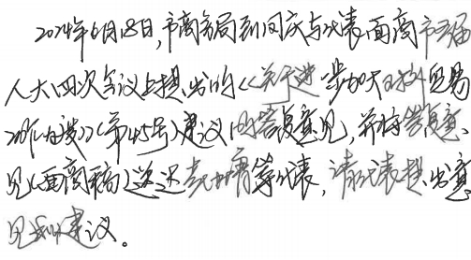 2024年6月18日,市商务局到问庆与代表面商市五届
人大四次会议上提出的《关于进一步加大对外贸易
的建议》(第45号)建议的答复意见,并将答复意
见(面商稿)送达等代表,请代表提出意
见和建议。